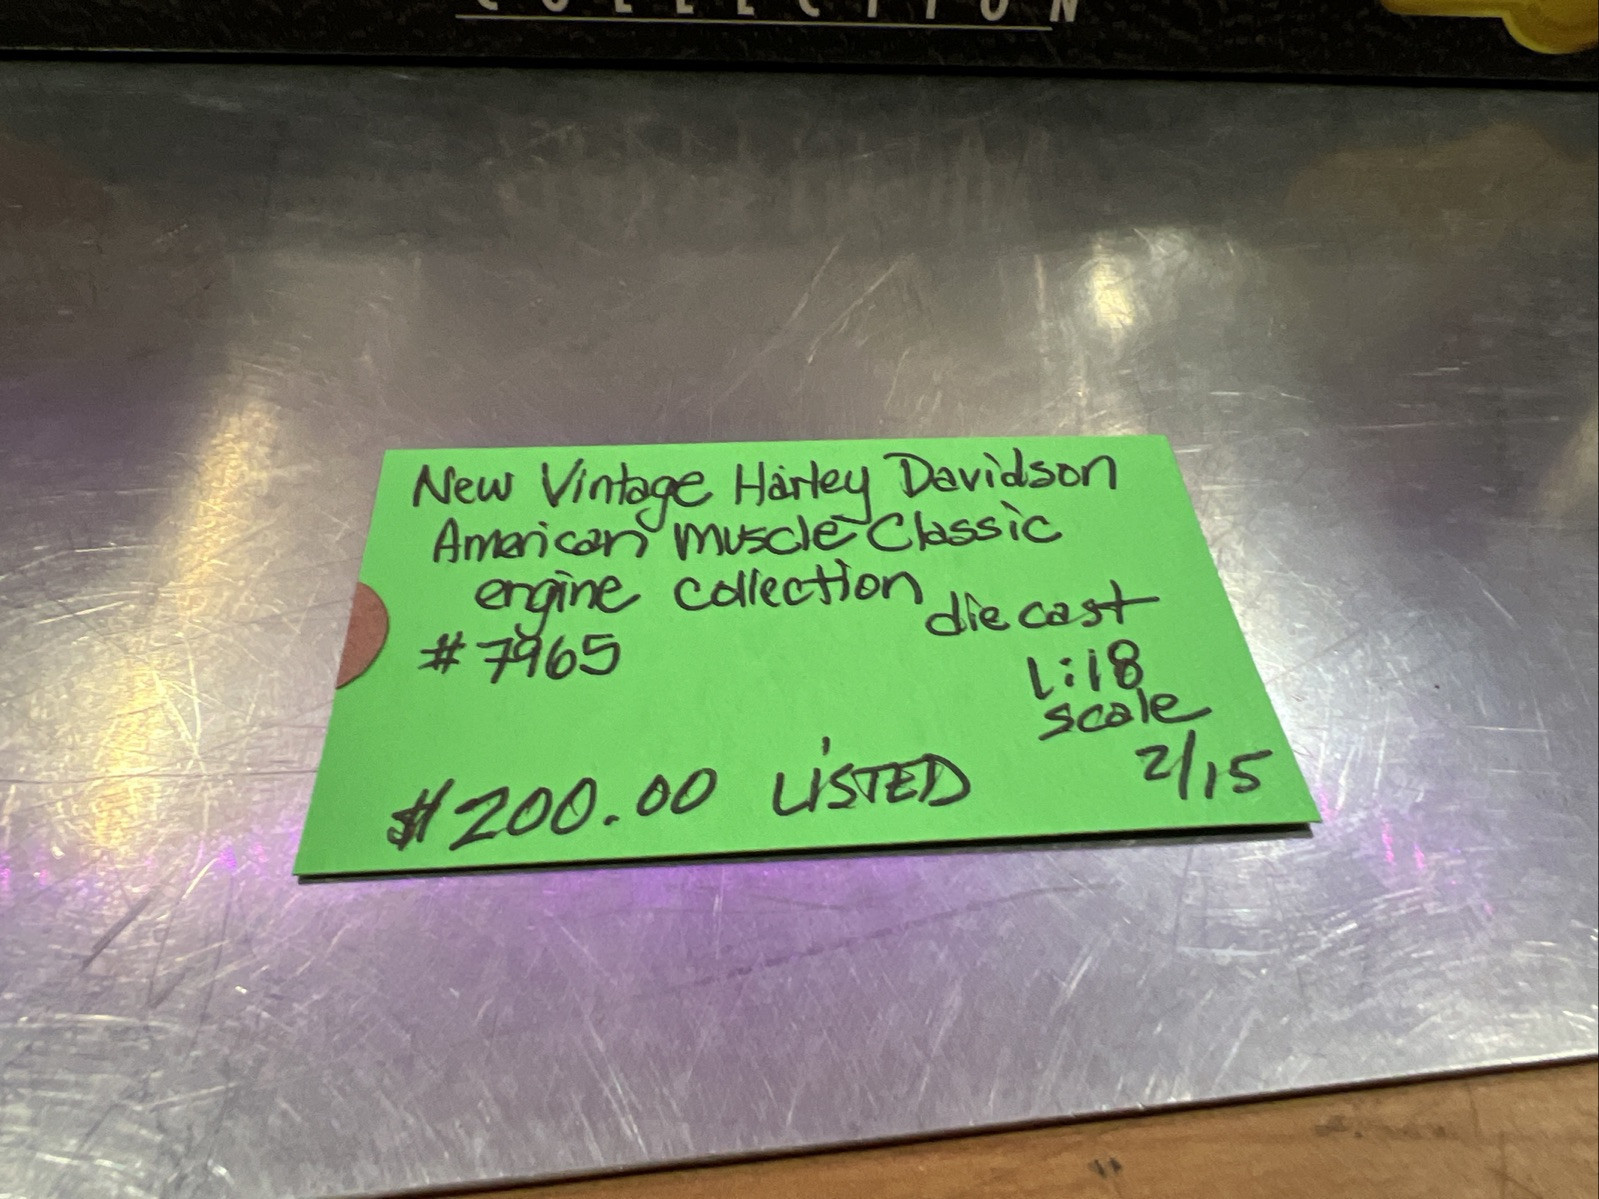 COLLECTION
New Vintage Harley Davidson
American Muscle Classic
engine collection
die cast
#7965
1:18
scale
2/15
$200.00 LISTED